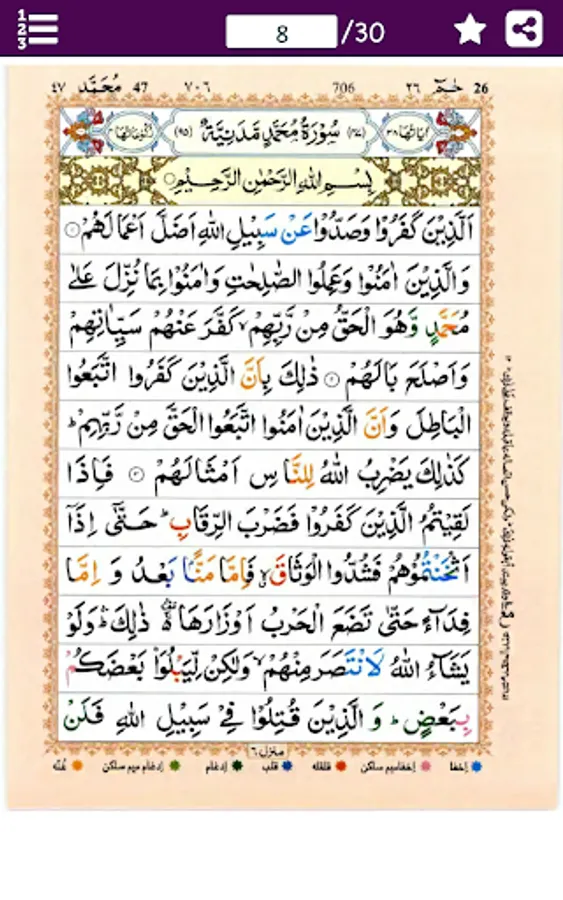 8 /30
26 حٰمٓ ٢٦ 706 ٧٠٦ 47 مُحَمَّد ٤٧
اٰیَاتُهَا ٣٨ (٤٧) سُوْرَةُ مُحَمَّدٍ مَّدَنِیَّةٌ (٩٥) رُكُوْعَاتُهَا ٤
بِسْمِ اللهِ الرَّحْمٰنِ الرَّحِیْمِ
اَلَّذِیْنَ كَفَرُوْا وَصَدُّوْا عَنْ سَبِیْلِ اللهِ اَضَلَّ اَعْمَالَهُمْ ۝١
وَالَّذِیْنَ اٰمَنُوْا وَعَمِلُوا الصّٰلِحٰتِ وَاٰمَنُوْا بِمَا نُزِّلَ عَلٰی
مُحَمَّدٍ وَّهُوَ الْحَقُّ مِنْ رَّبِّهِمْ ۙ كَفَّرَ عَنْهُمْ سَیِّاٰتِهِمْ
وَاَصْلَحَ بَالَهُمْ ۝٢ ذٰلِكَ بِاَنَّ الَّذِیْنَ كَفَرُوا اتَّبَعُوا
الْبَاطِلَ وَاَنَّ الَّذِیْنَ اٰمَنُوا اتَّبَعُوا الْحَقَّ مِنْ رَّبِّهِمْ ؕ
كَذٰلِكَ یَضْرِبُ اللهُ لِلنَّاسِ اَمْثَالَهُمْ ۝٣ فَاِذَا
لَقِیْتُمُ الَّذِیْنَ كَفَرُوْا فَضَرْبَ الرِّقَابِ ؕ حَتّٰۤی اِذَاۤ
اَثْخَنْتُمُوْهُمْ فَشُدُّوا الْوَثَاقَ ۙ فَاِمَّا مَنًّۢا بَعْدُ وَ اِمَّا
فِدَآءً حَتّٰی تَضَعَ الْحَرْبُ اَوْزَارَهَا ۛ۬ ذٰلِكَ ۛؕ وَلَوْ
یَشَآءُ اللهُ لَانْتَصَرَ مِنْهُمْ ۙ وَلٰكِنْ لِّیَبْلُوَا۠ بَعْضَكُمْ
بِبَعْضٍ ؕ وَ الَّذِیْنَ قُتِلُوْا فِیْ سَبِیْلِ اللهِ فَلَنْ
منزل ٦
إخفا إخفا میم ساكن قلقله قلب إدغام إدغام میم ساكن غُنّه